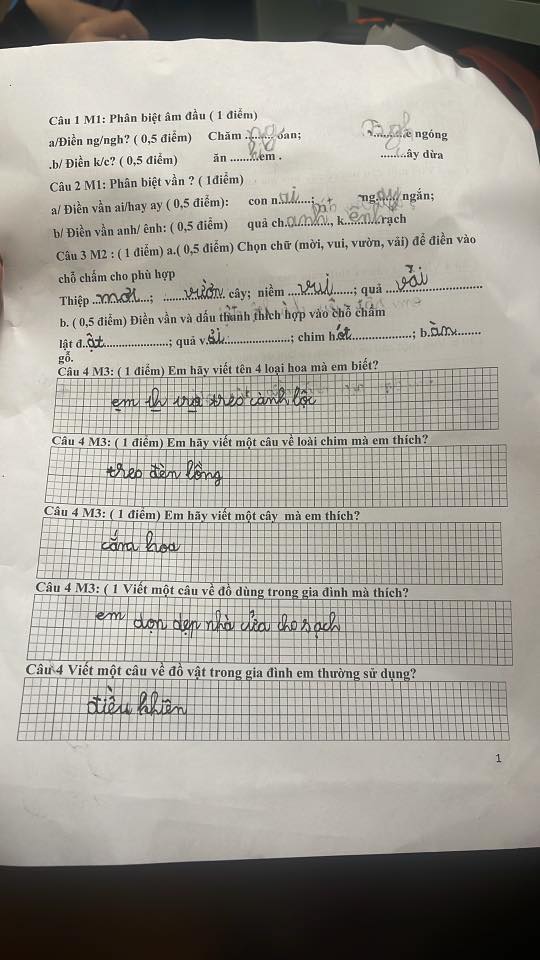 Câu 1 M1: Phân biệt âm đầu ( 1 điểm)
a/Điền ng/ngh? ( 0,5 điểm) Chăm ...ng... oán; ...ngh...e ngóng
.b/ Điền k/c? ( 0,5 điểm) ăn .........em . ........ây dừa
Câu 2 M1: Phân biệt vần ? ( 1điểm)
a/ Điền vần ai/hay ay ( 0,5 điểm): con n...ai...; ng...ay... ngắn;
b/ Điền vần anh/ ênh: ( 0,5 điểm) quả ch...anh..., k...ênh...rạch
Câu 3 M2 : ( 1 điểm) a.( 0,5 điểm) Chọn chữ (mời, vui, vườn, vải) để điền vào
chỗ chấm cho phù hợp
Thiệp ...mời...; ...vườn. cây; niềm ...vui...; quả ...vải...
b. ( 0,5 điểm) Điền vần và dấu thanh thích hợp vào chỗ chấm
lật đ.ật...; quả v.ải...; chim h.ót...; b.àn...
gỗ.
Câu 4 M3: ( 1 điểm) Em hãy viết tên 4 loại hoa mà em biết?
em treo cành lộc
Câu 4 M3: ( 1 điểm) Em hãy viết một câu về loài chim mà em thích?
treo đèn lồng
Câu 4 M3: ( 1 điểm) Em hãy viết một cây mà em thích?
cắm hoa
Câu 4 M3: ( 1 Viết một câu về đồ dùng trong gia đình mà thích?
em dọn dẹp nhà cửa cho sạch
Câu 4 Viết một câu về đồ vật trong gia đình em thường sử dụng?
điều khiên
1